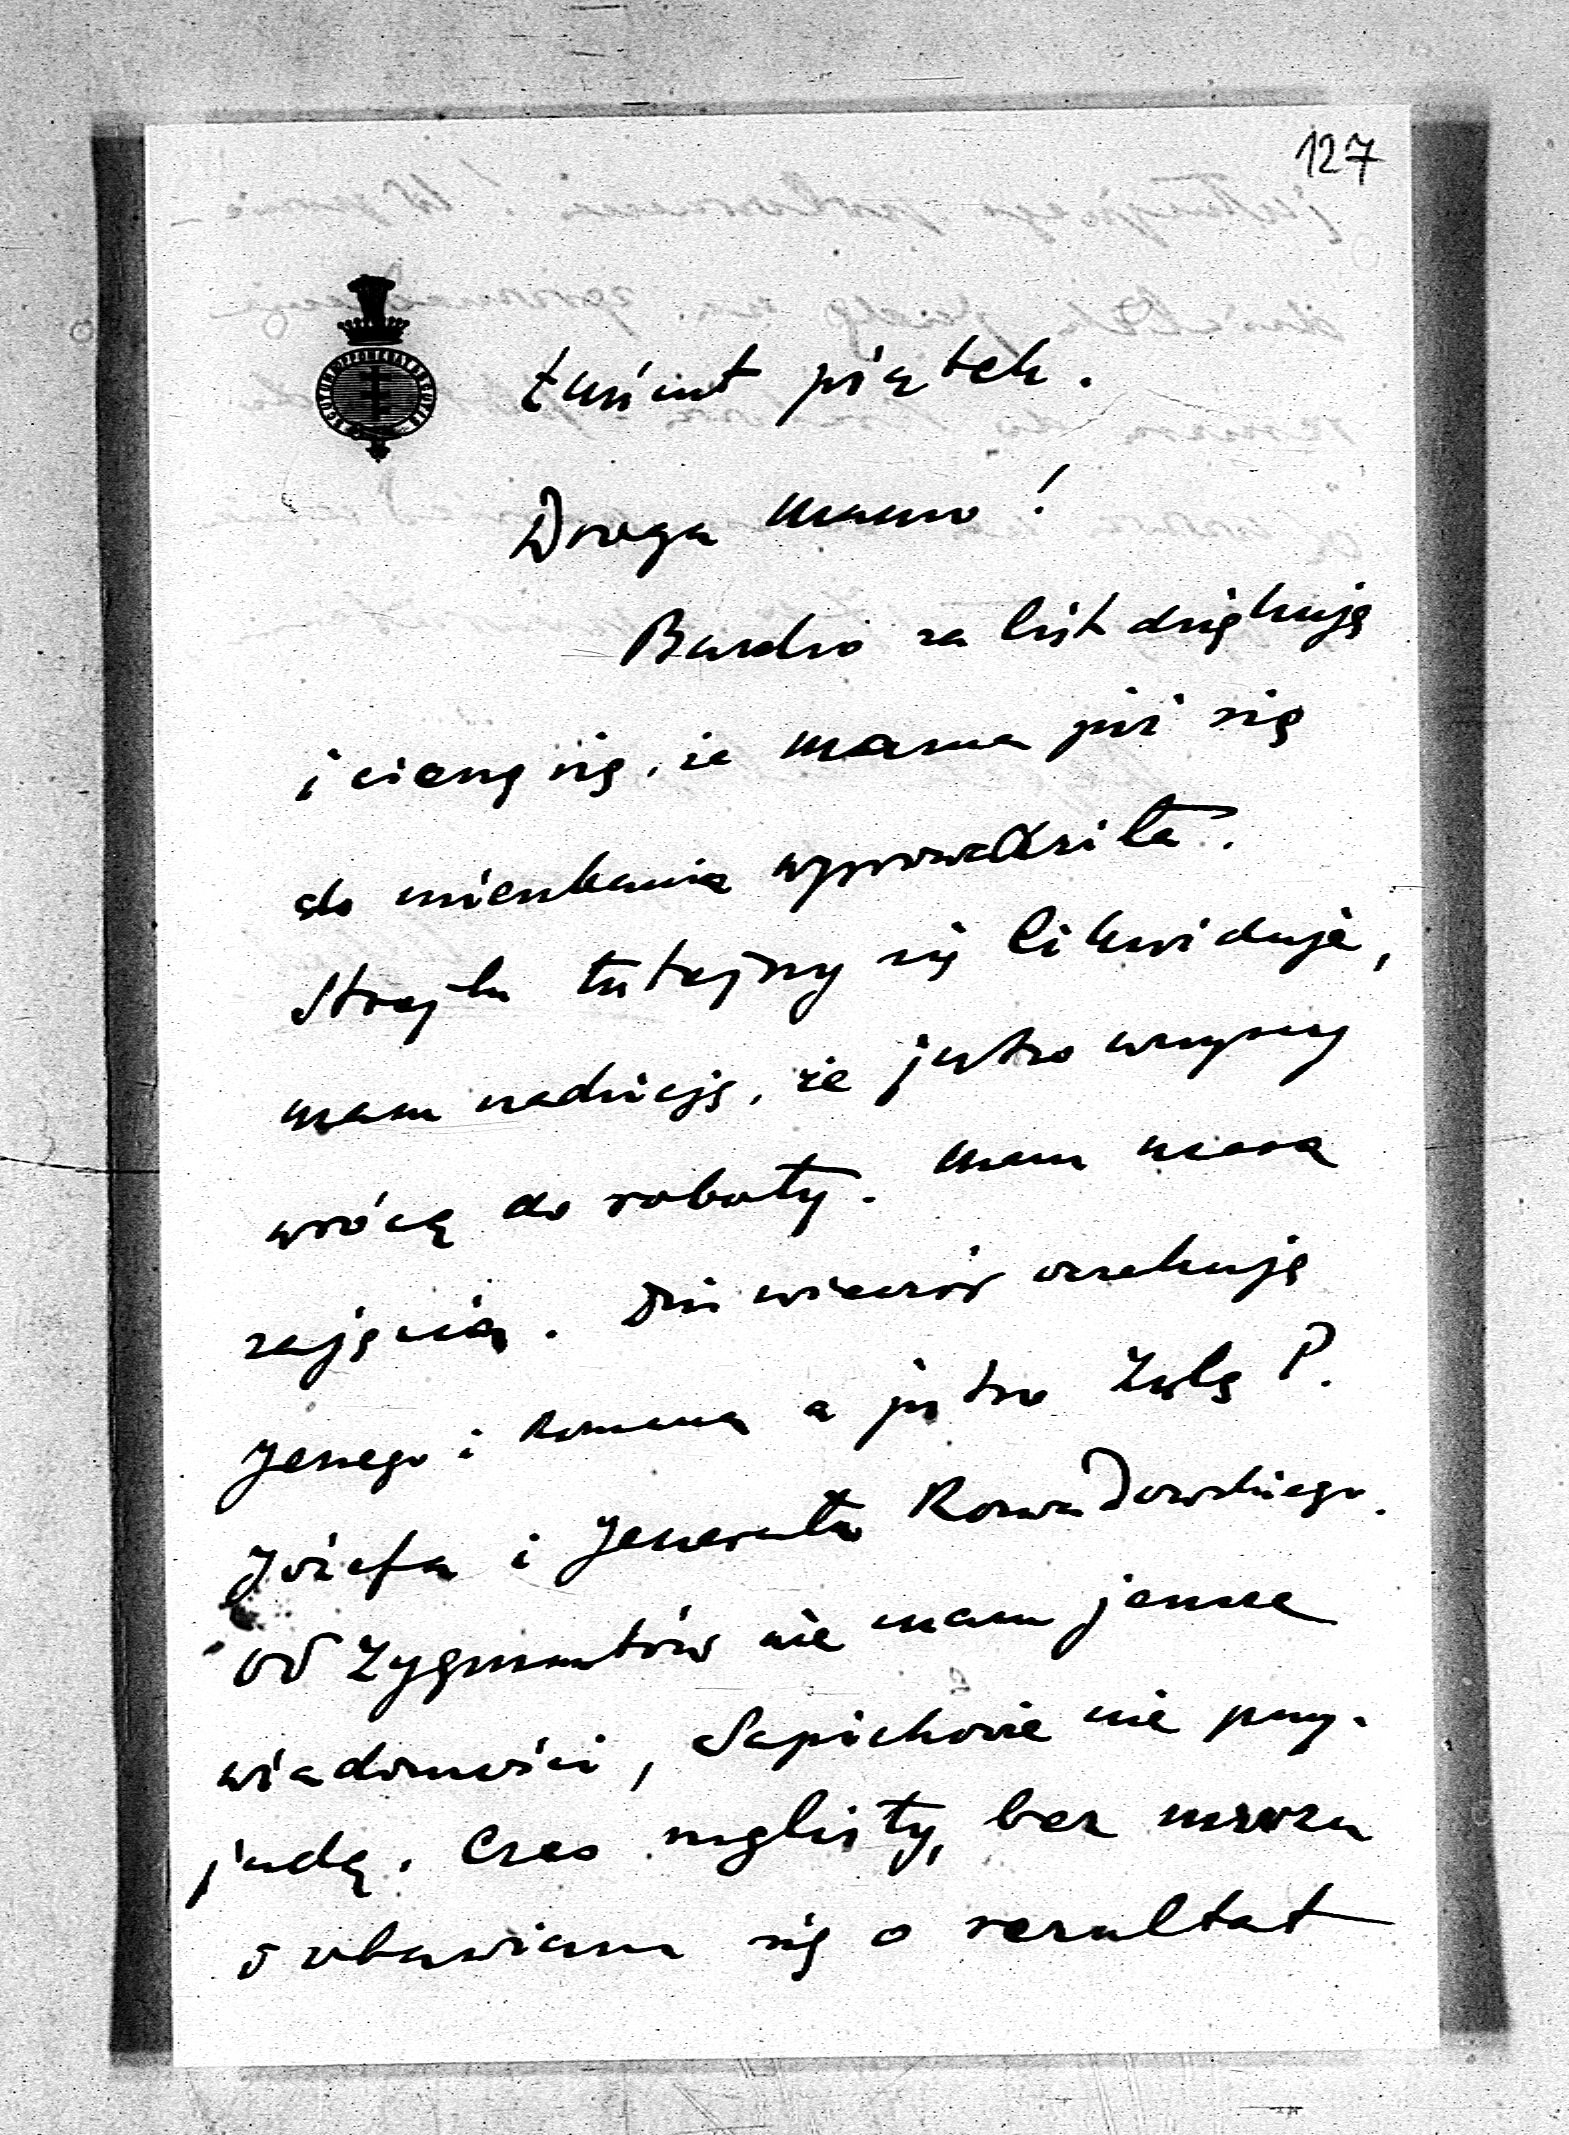 127
Łańcut piątek.
Droga Mamo!
Bardzo za list dziękuję
i cieszę się, że Mama już się
do mieszkania wprowadziła.
Strajk tutejszy się likwiduje,
mam nadzieję, że jutro wszyscy
wrócą do roboty. Mam masę
zajęcia. Dziś wieczór oczekuję
Jerzego i Romana a jutro P.
Józefa i Jenerała Rozwadowskiego.
Od Zygmuntów nie mam jeszcze
wiadomości, Sapiehowie nie przy-
jadą. Czas mglisty, bez mrozu
obawiam się o rezultat